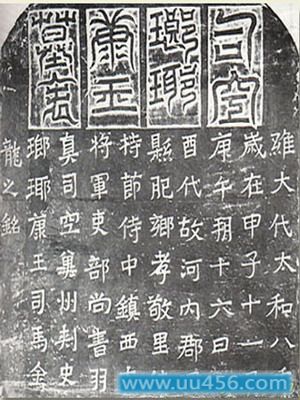 司空
瑯琊
康王
墓表
維大代大和八年
歲在甲子十一
庚午朔十六日
酉代故河內郡
縣肥鄉孝敬里
持節侍中鎮西大
將軍吏部尚書羽
真司空冀州刺史
瑯琊康王司馬金
龍之銘
www.uu456.com